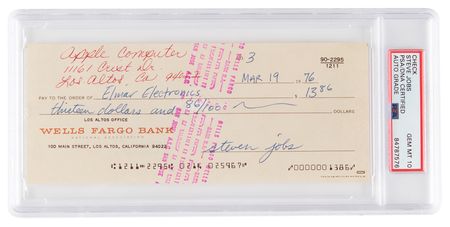 Apple Computer
11161 Crest Dr.
Los Altos Ca
3
90-2295
1211
MAR 19 76
PAY TO THE ORDER OF Elmar Electronics 13 86
thirteen dollars and 86/100 DOLLARS
LOS ALTOS OFFICE
WELLS FARGO BANK
NATIONAL ASSOCIATION
100 MAIN STREET, LOS ALTOS, CALIFORNIA 94022
steven jobs
CHECK
STEVE JOBS
PSA/DNA CERTIFIED
AUTO GRADE
GEM MT 10
84787576